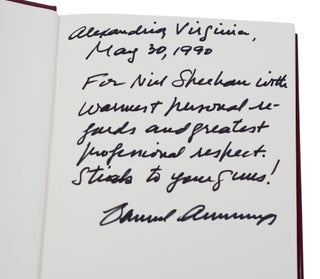 Alexandria Virginia,
May 30, 1990
For Niel Sheehan with
warmest personal re-
gards and greatest
professional respect.
Stick to your guns!
Samuel Cummings